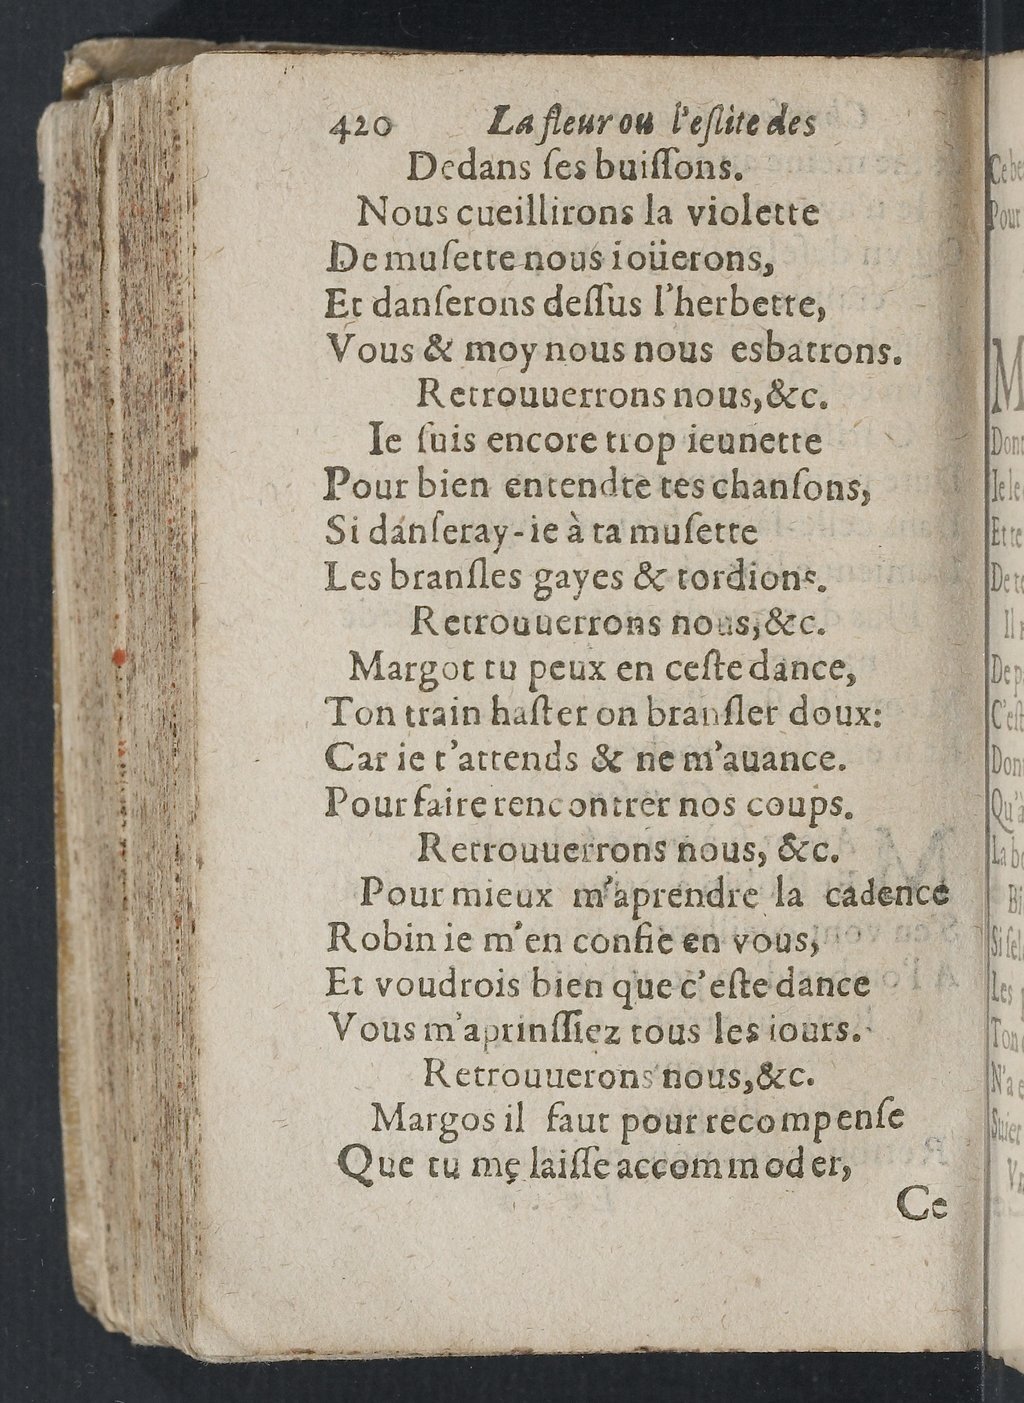 420 La fleur ou l'eſlite des
Dedans ſes buiſſons.
Nous cueillirons la violette
De muſette nous ioüerons,
Et danſerons deſſus l'herbette,
Vous & moy nous nous esbatrons.
Retrouuerrons nous, &c.
Ie ſuis encore trop ieunette
Pour bien entendte tes chanſons,
Si danſeray-ie à ta muſette
Les branſles gayes & tordions.
Retrouuerrons nous, &c.
Margot tu peux en ceſte dance,
Ton train haſter on branſler doux:
Car ie t'attends & ne m'auance.
Pour faire rencontrer nos coups.
Retrouuerrons nous, &c.
Pour mieux m'aprendre la cadence
Robin ie m'en confie en vous,
Et voudrois bien que c'eſte dance
Vous m'aprinſſiez tous les iours.
Retrouuerons nous, &c.
Margos il faut pour recompenſe
Que tu me laiſſe accommoder,
Ce
Ce be
Pour
M
Dont
Ie le
Et te
De te
Il
De p
C'eſt
Don
Qu'a
La bo
Bi
Si ſel
Les
Ton
N'a e